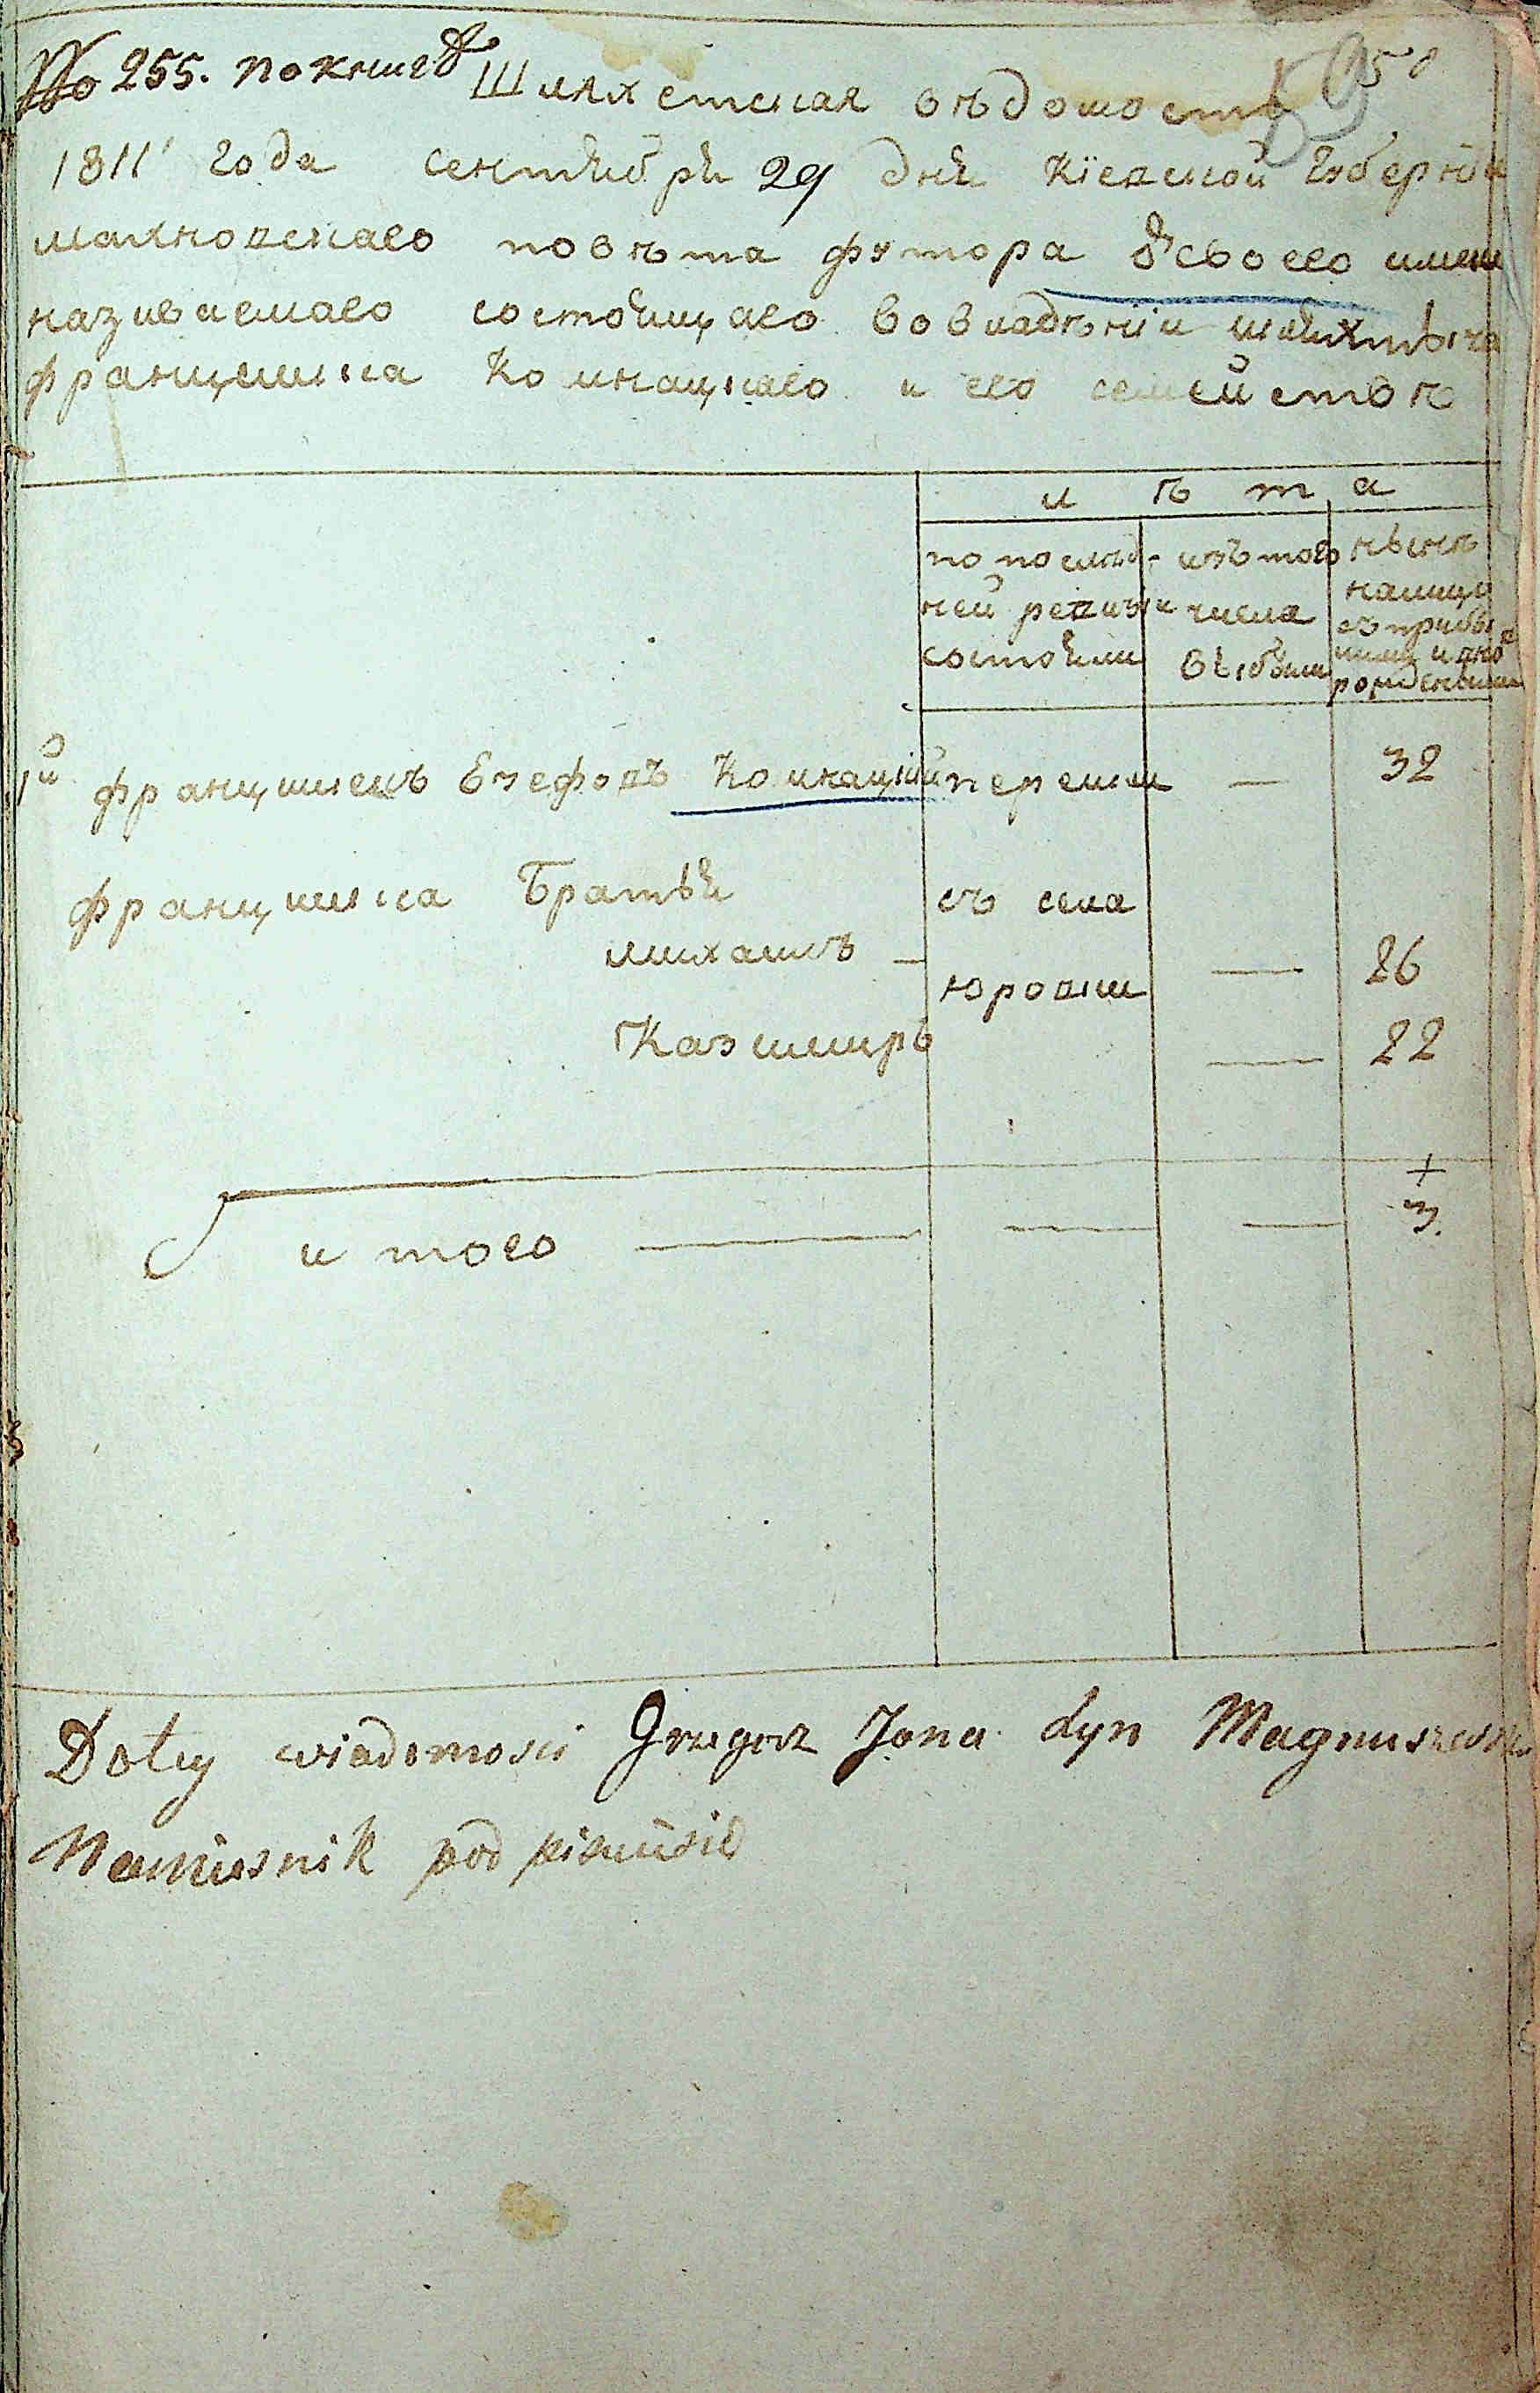 No 255. по книгѣ Шляхетская вѣдомость
1811 года сентября 29 дня Кіевской губерніи
махновскаго повѣта футора своего имени
називаемаго состоящаго во владѣніи шляхтыча
францишка Комнацкаго и его семействѣ
лѣта
по послѣд-
ней ревизіи
состояли
изъ того
числа
выбыли
нынѣ
налицо
съ прибы
лими и вно
рожденными
1й францишекъ Езефовъ Комнацкій перешли — 32
францишка Братья
съ села
михаилъ — — 26
юровки
Казимиръ — 22
и того — — — 3.
Do tey wiadomosci Grzegorz Jona syn Magnuszewski
Namiesnik podpisuiesie